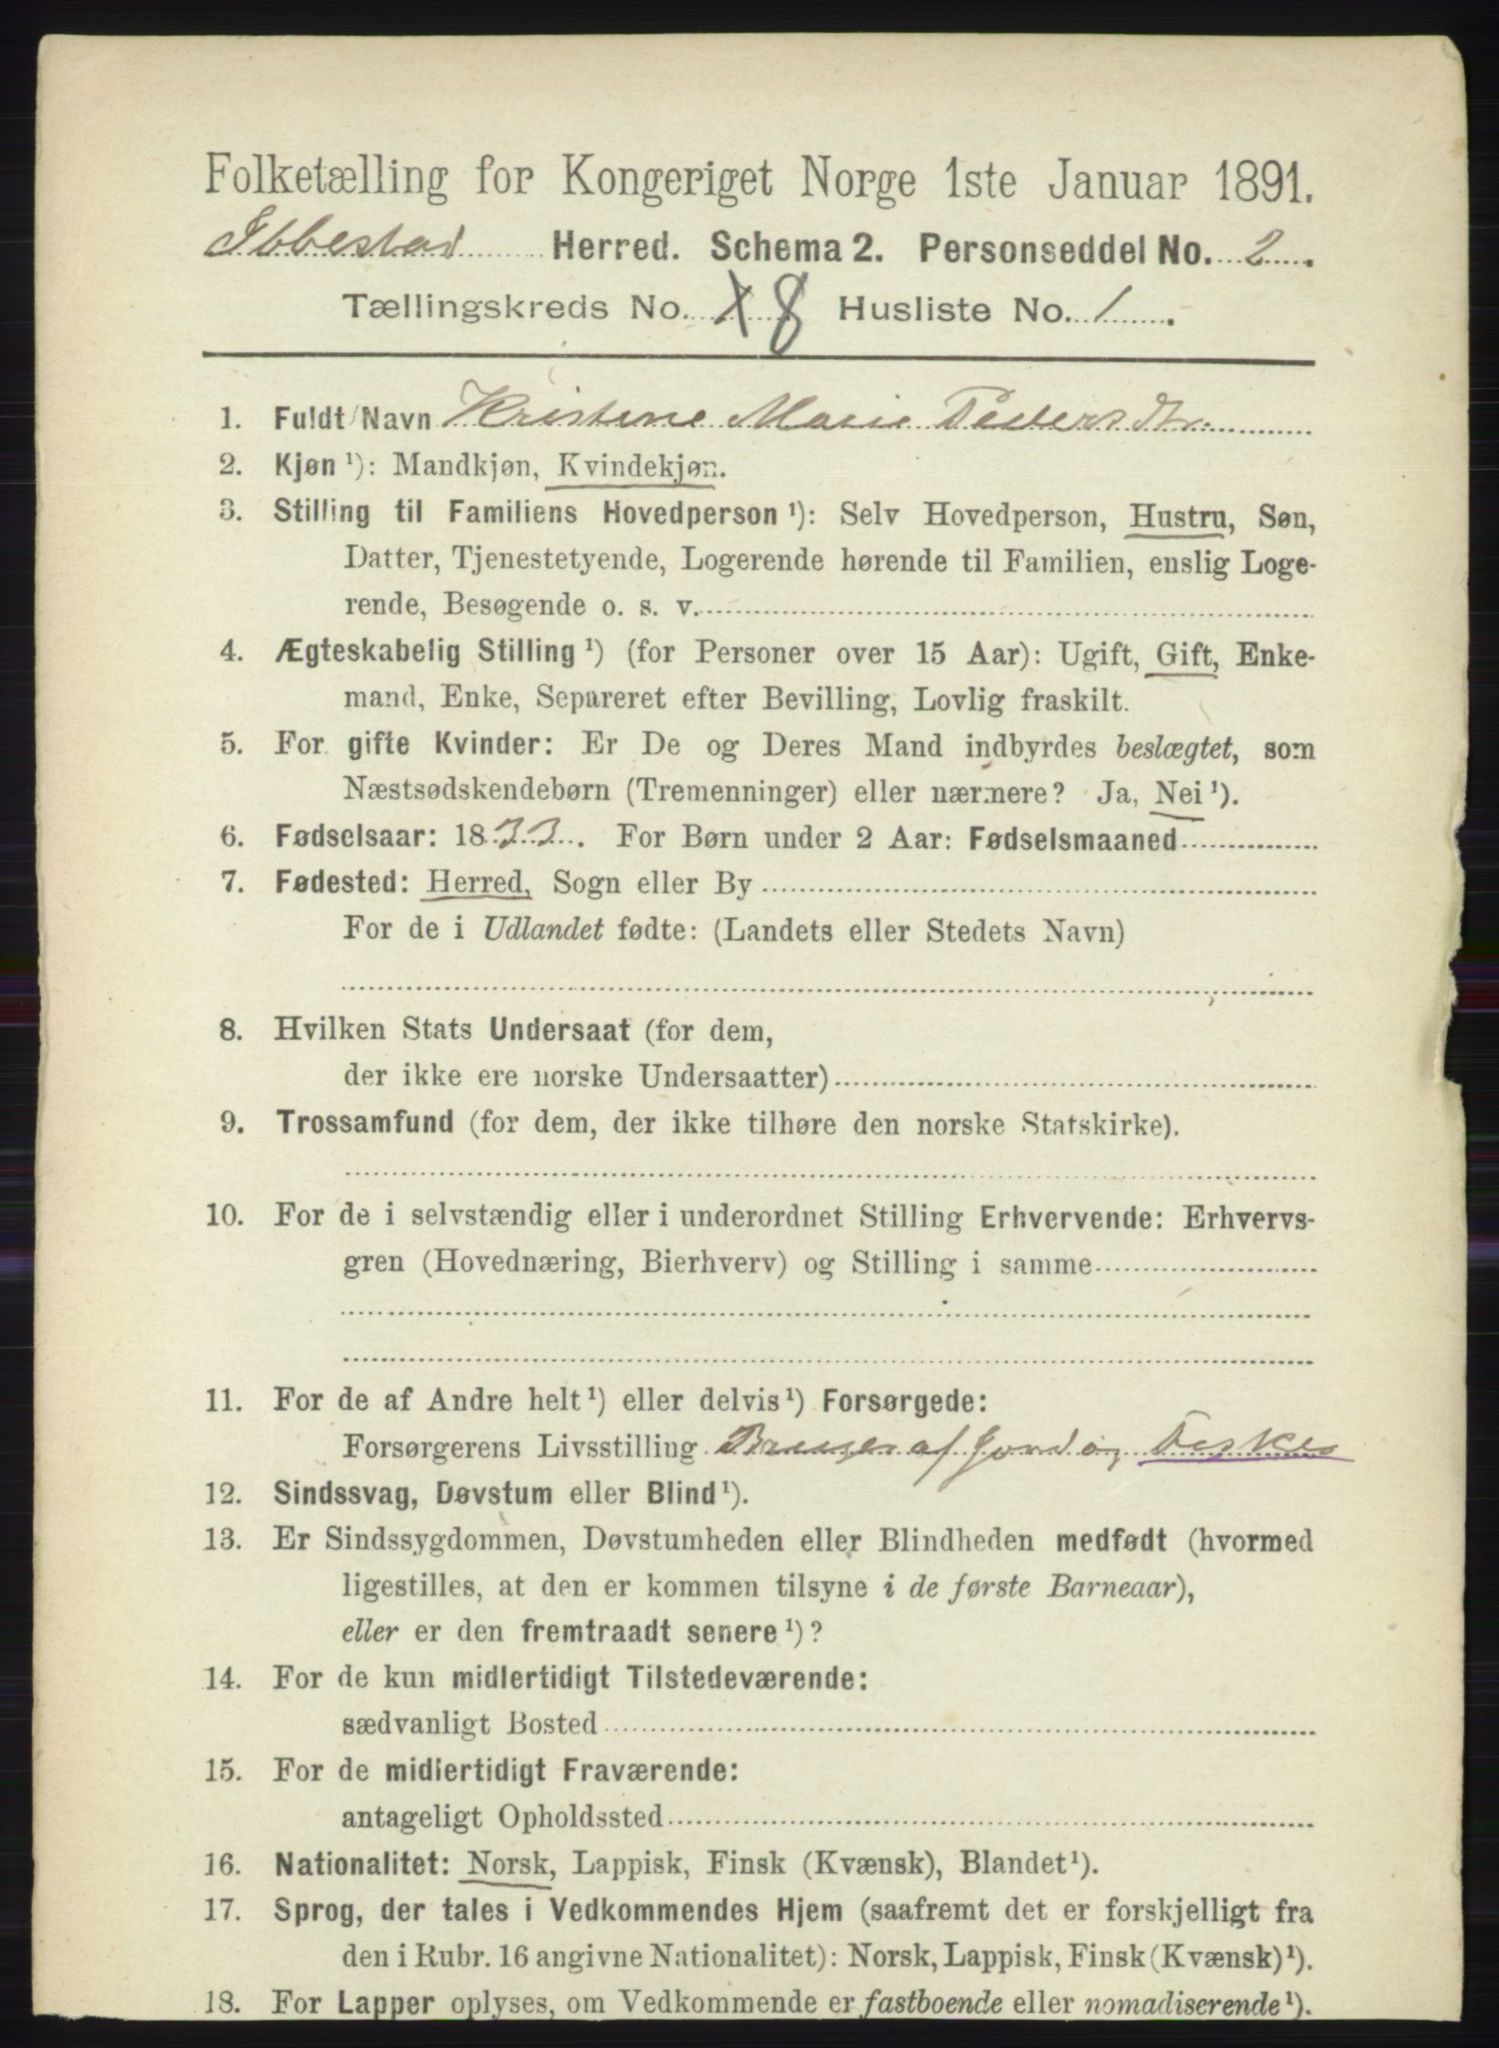 Folketælling for Kongeriget Norge 1ste Januar 1891.
Ibbestad Herred. Schema 2. Personseddel No. 2.
Tællingskreds No. 8 Husliste No. 1.
1. Fuldt Navn Kristine Marie Pedersdtr.
2. Kjøn ¹): Mandkjøn, Kvindekjøn.
3. Stilling til Familiens Hovedperson ¹): Selv Hovedperson, Hustru, Søn,
Datter, Tjenestetyende, Logerende hørende til Familien, enslig Loge-
rende, Besøgende o. s. v.
4. Ægteskabelig Stilling ¹) (for Personer over 15 Aar): Ugift, Gift, Enke-
mand, Enke, Separeret efter Bevilling, Lovlig fraskilt.
5. For gifte Kvinder: Er De og Deres Mand indbyrdes beslægtet, som
Næstsødskendebørn (Tremenninger) eller nærmere? Ja, Nei ¹).
6. Fødselsaar: 1833. For Børn under 2 Aar: Fødselsmaaned
7. Fødested: Herred, Sogn eller By
For de i Udlandet fødte: (Landets eller Stedets Navn)
8. Hvilken Stats Undersaat (for dem,
der ikke ere norske Undersaatter)
9. Trossamfund (for dem, der ikke tilhøre den norske Statskirke).
10. For de i selvstændig eller i underordnet Stilling Erhvervende: Erhvervs-
gren (Hovednæring, Bierhverv) og Stilling i samme
11. For de af Andre helt ¹) eller delvis ¹) Forsørgede:
Forsørgerens Livsstilling Bruger af Jord og Fisker
12. Sindssvag, Døvstum eller Blind ¹).
13. Er Sindssygdommen, Døvstumheden eller Blindheden medfødt (hvormed
ligestilles, at den er kommen tilsyne i de første Barneaar),
eller er den fremtraadt senere ¹)?
14. For de kun midlertidigt Tilstedeværende:
sædvanligt Bosted
15. For de midlertidigt Fraværende:
antageligt Opholdssted
16. Nationalitet: Norsk, Lappisk, Finsk (Kvænsk), Blandet ¹).
17. Sprog, der tales i Vedkommendes Hjem (saafremt det er forskjelligt fra
den i Rubr. 16 angivne Nationalitet): Norsk, Lappisk, Finsk (Kvænsk) ¹).
18. For Lapper oplyses, om Vedkommende er fastboende eller nomadiserende ¹).